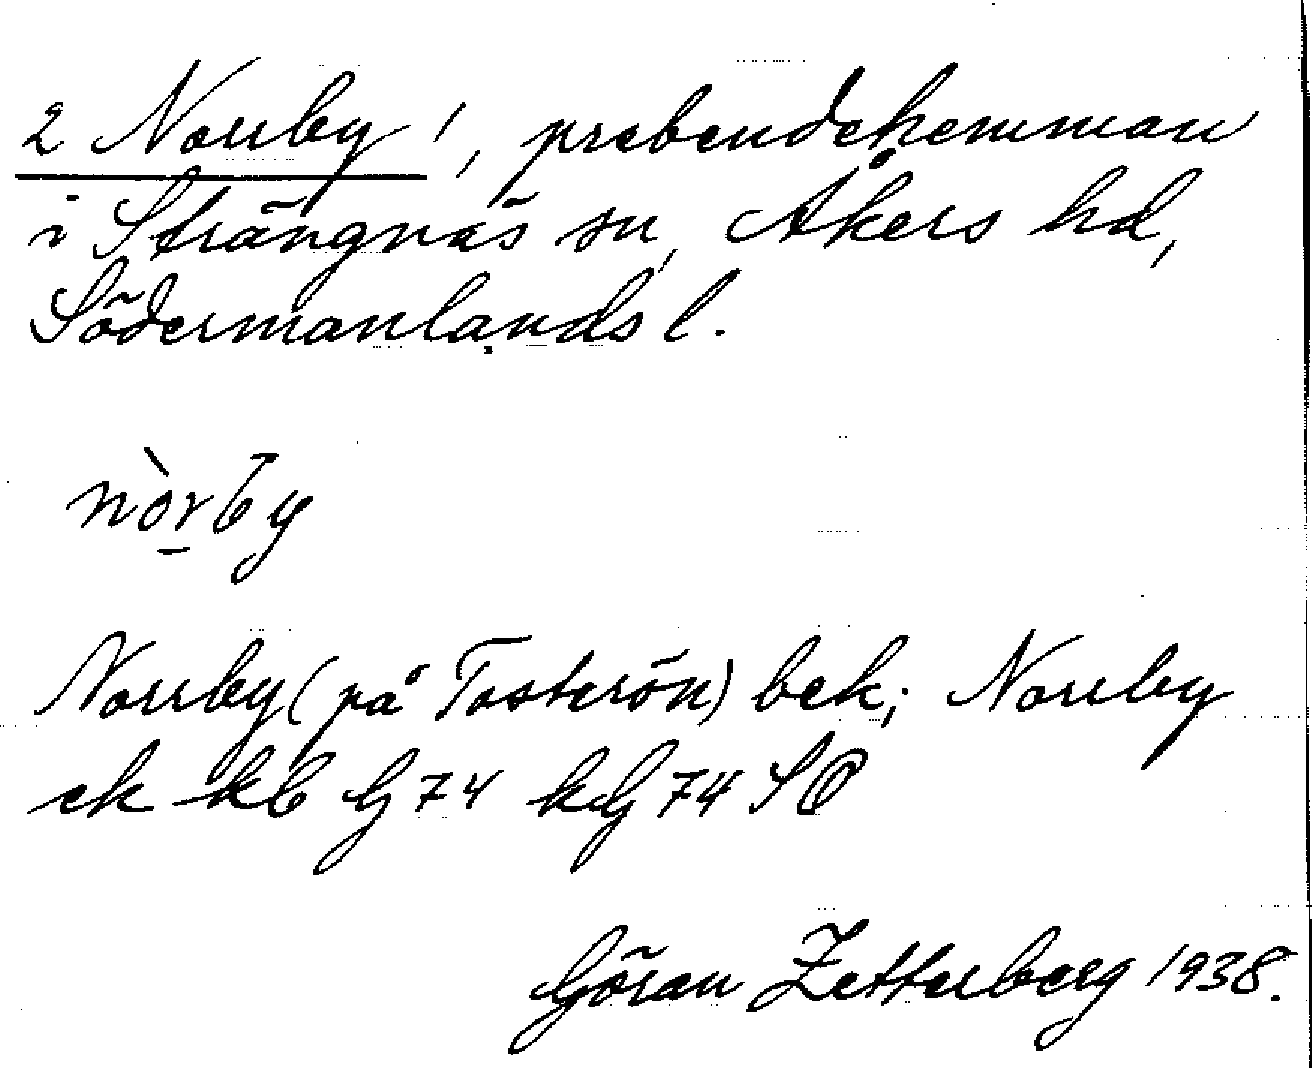 2 Norrby !, prebendehemman
i Strängnäs sn, Åkers hd,
Södermanlands l.
nòrby
Norrby (på Tosterön) bek; Norrby
ek kb G 74 kG 74 SO
Göran Zetterberg 1938.